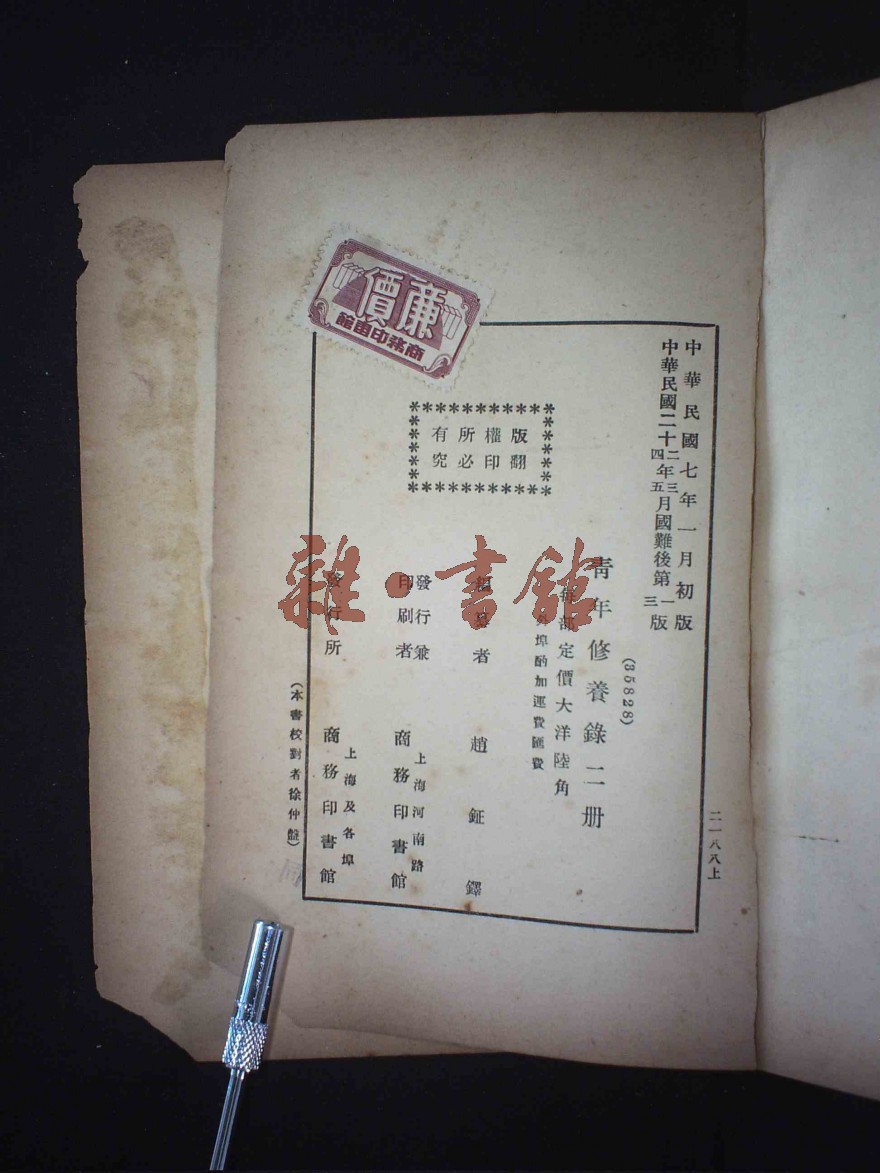 中華民國七年一月初版
中華民國二十二四年三五月國難後第一三版
(35828)
青年修養錄二册
每部定價大洋陸角
外埠酌加運費匯費
版權所有
翻印必究
編纂者 趙鉦鐸
發行兼印刷者 上海河南路 商務印書館
發行所 上海及各埠 商務印書館
(本書校對者徐仲盤)
二一八八上
廉價
商務印書館
雜·書館